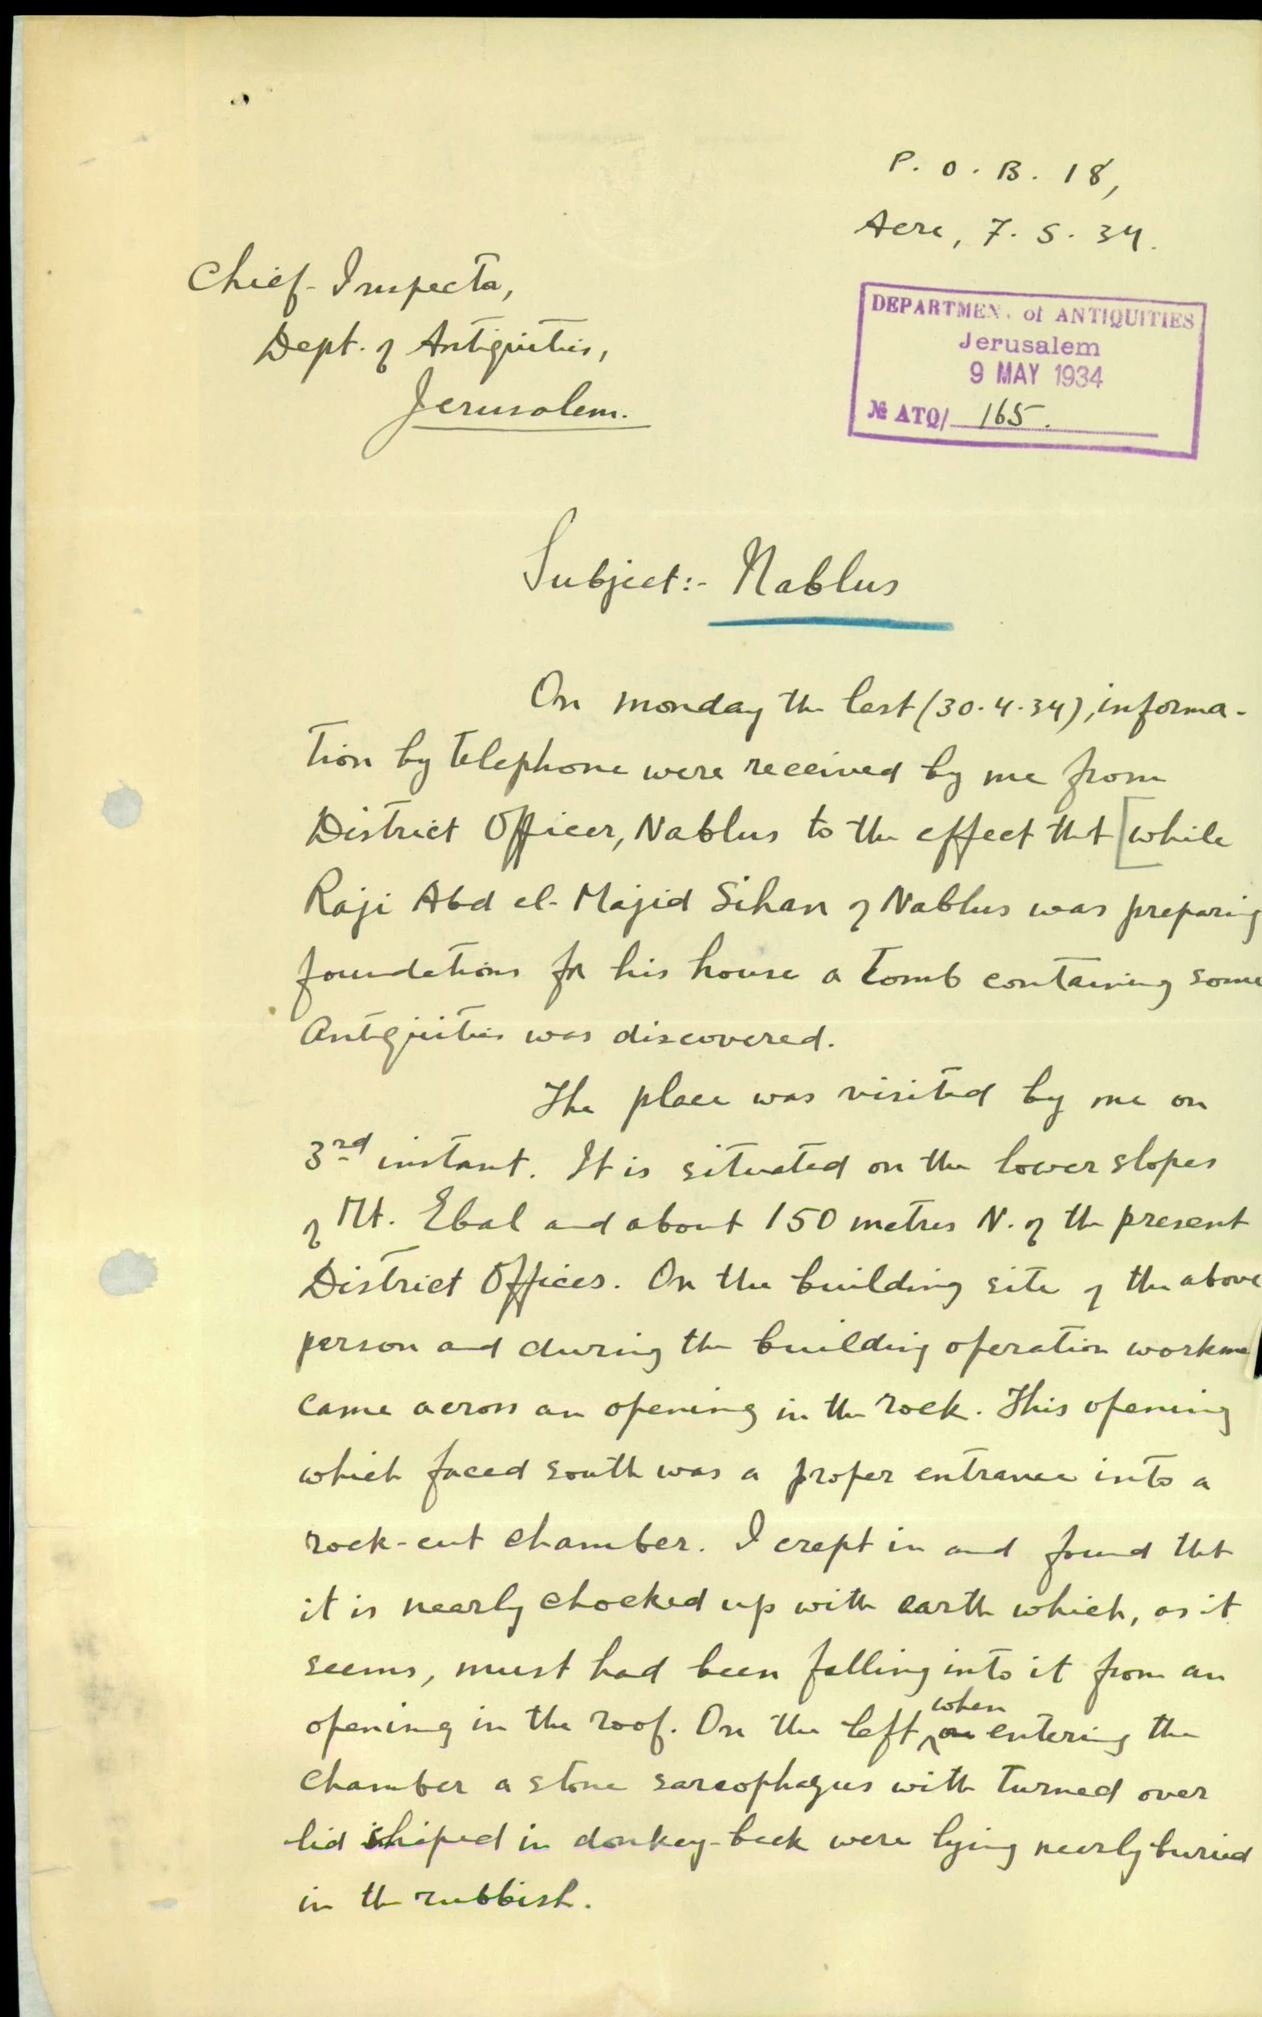 P. O. B. 18,
Acre, 7. 5. 34.
Chief-Inspector,
Dept. of Antiquities,
Jerusalem.
DEPARTMEN. of ANTIQUITIES
Jerusalem
9 MAY 1934
№ ATQ/ 165.
Subject:- Nablus
On monday the last (30.4.34), informa-
tion by telephone were received by me from
District Officer, Nablus to the effect that [while
Raji Abd el-Majid Sihan of Nablus was preparing
foundations for his house a tomb containing some
Antiquities was discovered.
The place was visited by me on
3rd instant. It is situated on the lower slopes
of Mt. Ebal and about 150 metres N. of the present
District Offices. On the building site of the above
person and during the building operation workme
came across an opening in the rock. This opening
which faced south was a proper entrance into a
rock-cut chamber. I crept in and found that
it is nearly chocked up with earth which, as it
seems, must had been falling into it from an
opening in the roof. On the left when entering the
chamber a stone sarcophagus with turned over
lid shaped in donkey-back were lying nearly buried
in the rubbish.